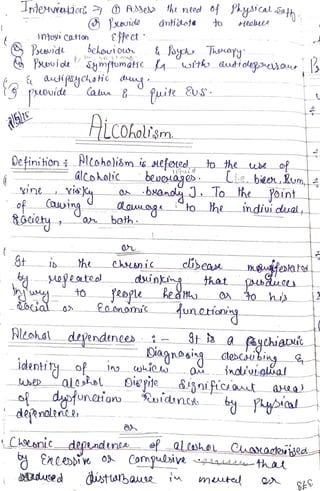 Interventions → ① Assess the need of Physical Safty
② Provide antidote to reduce
intoxication Effect.
③ Provide behaviour & Psyco Therapy.
④ Provide Symptomatic Rx with antidepressant,
& antipsychotic drug.
⑤ provide Calm & quite EVS.
Alcoholism
Definition : Alcoholism is refered to the use of
alcoholic beverages. [i.e. bier, Rum,
vine, visky or brandy]. To the Point
of Causing damage to the individual,
Society, or both.
or
It is the chronic disease manifestated
by repeated drinking that produces
Injury to People health or to his
Social or Economic functioning
Alcohol dependences :- It is a Psychiatric
Diagnosing describing &
identity of in which an individual
uses alcohol Dispite Significiant areas
of dysfunction Evidence by Physical
dependence.
or
Chronic dependence of alcohol Characterised
by Excessive or Compulsive that
disturbance in mental or